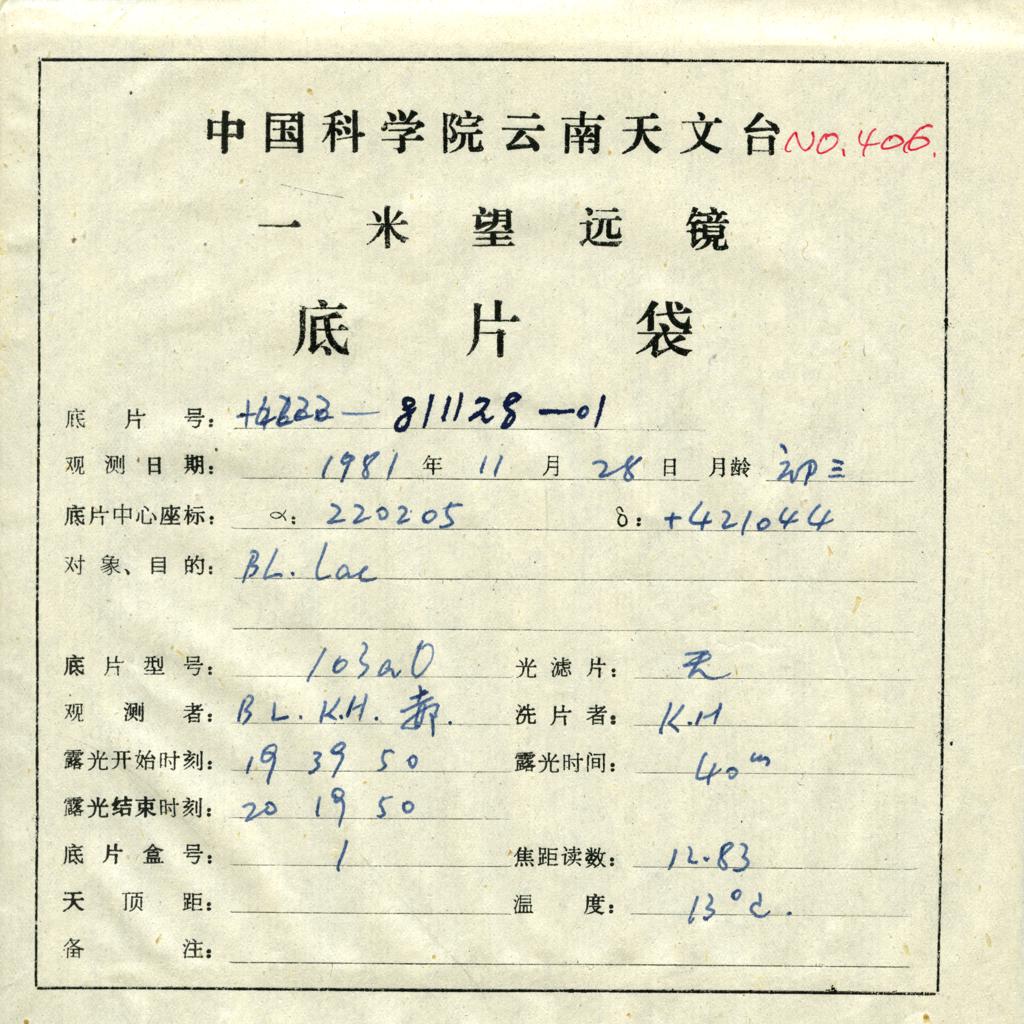 中国科学院云南天文台 NO.406.
一米望远镜
底片袋
底片号: 811128—01
观测日期: 1981年11月28日 月龄 初三
底片中心座标: α: 220205 δ: +421044
对象、目的: BL. Lac
底片型号: 103aO 光滤片: 无
观测者: BL. K.H. 光 洗片者: K.H
露光开始时刻: 19 39 50 露光时间: 40m
露光结束时刻: 20 19 50
底片盒号: 1 焦距读数: 12.83
天顶距: 温度: 13°C.
备注: